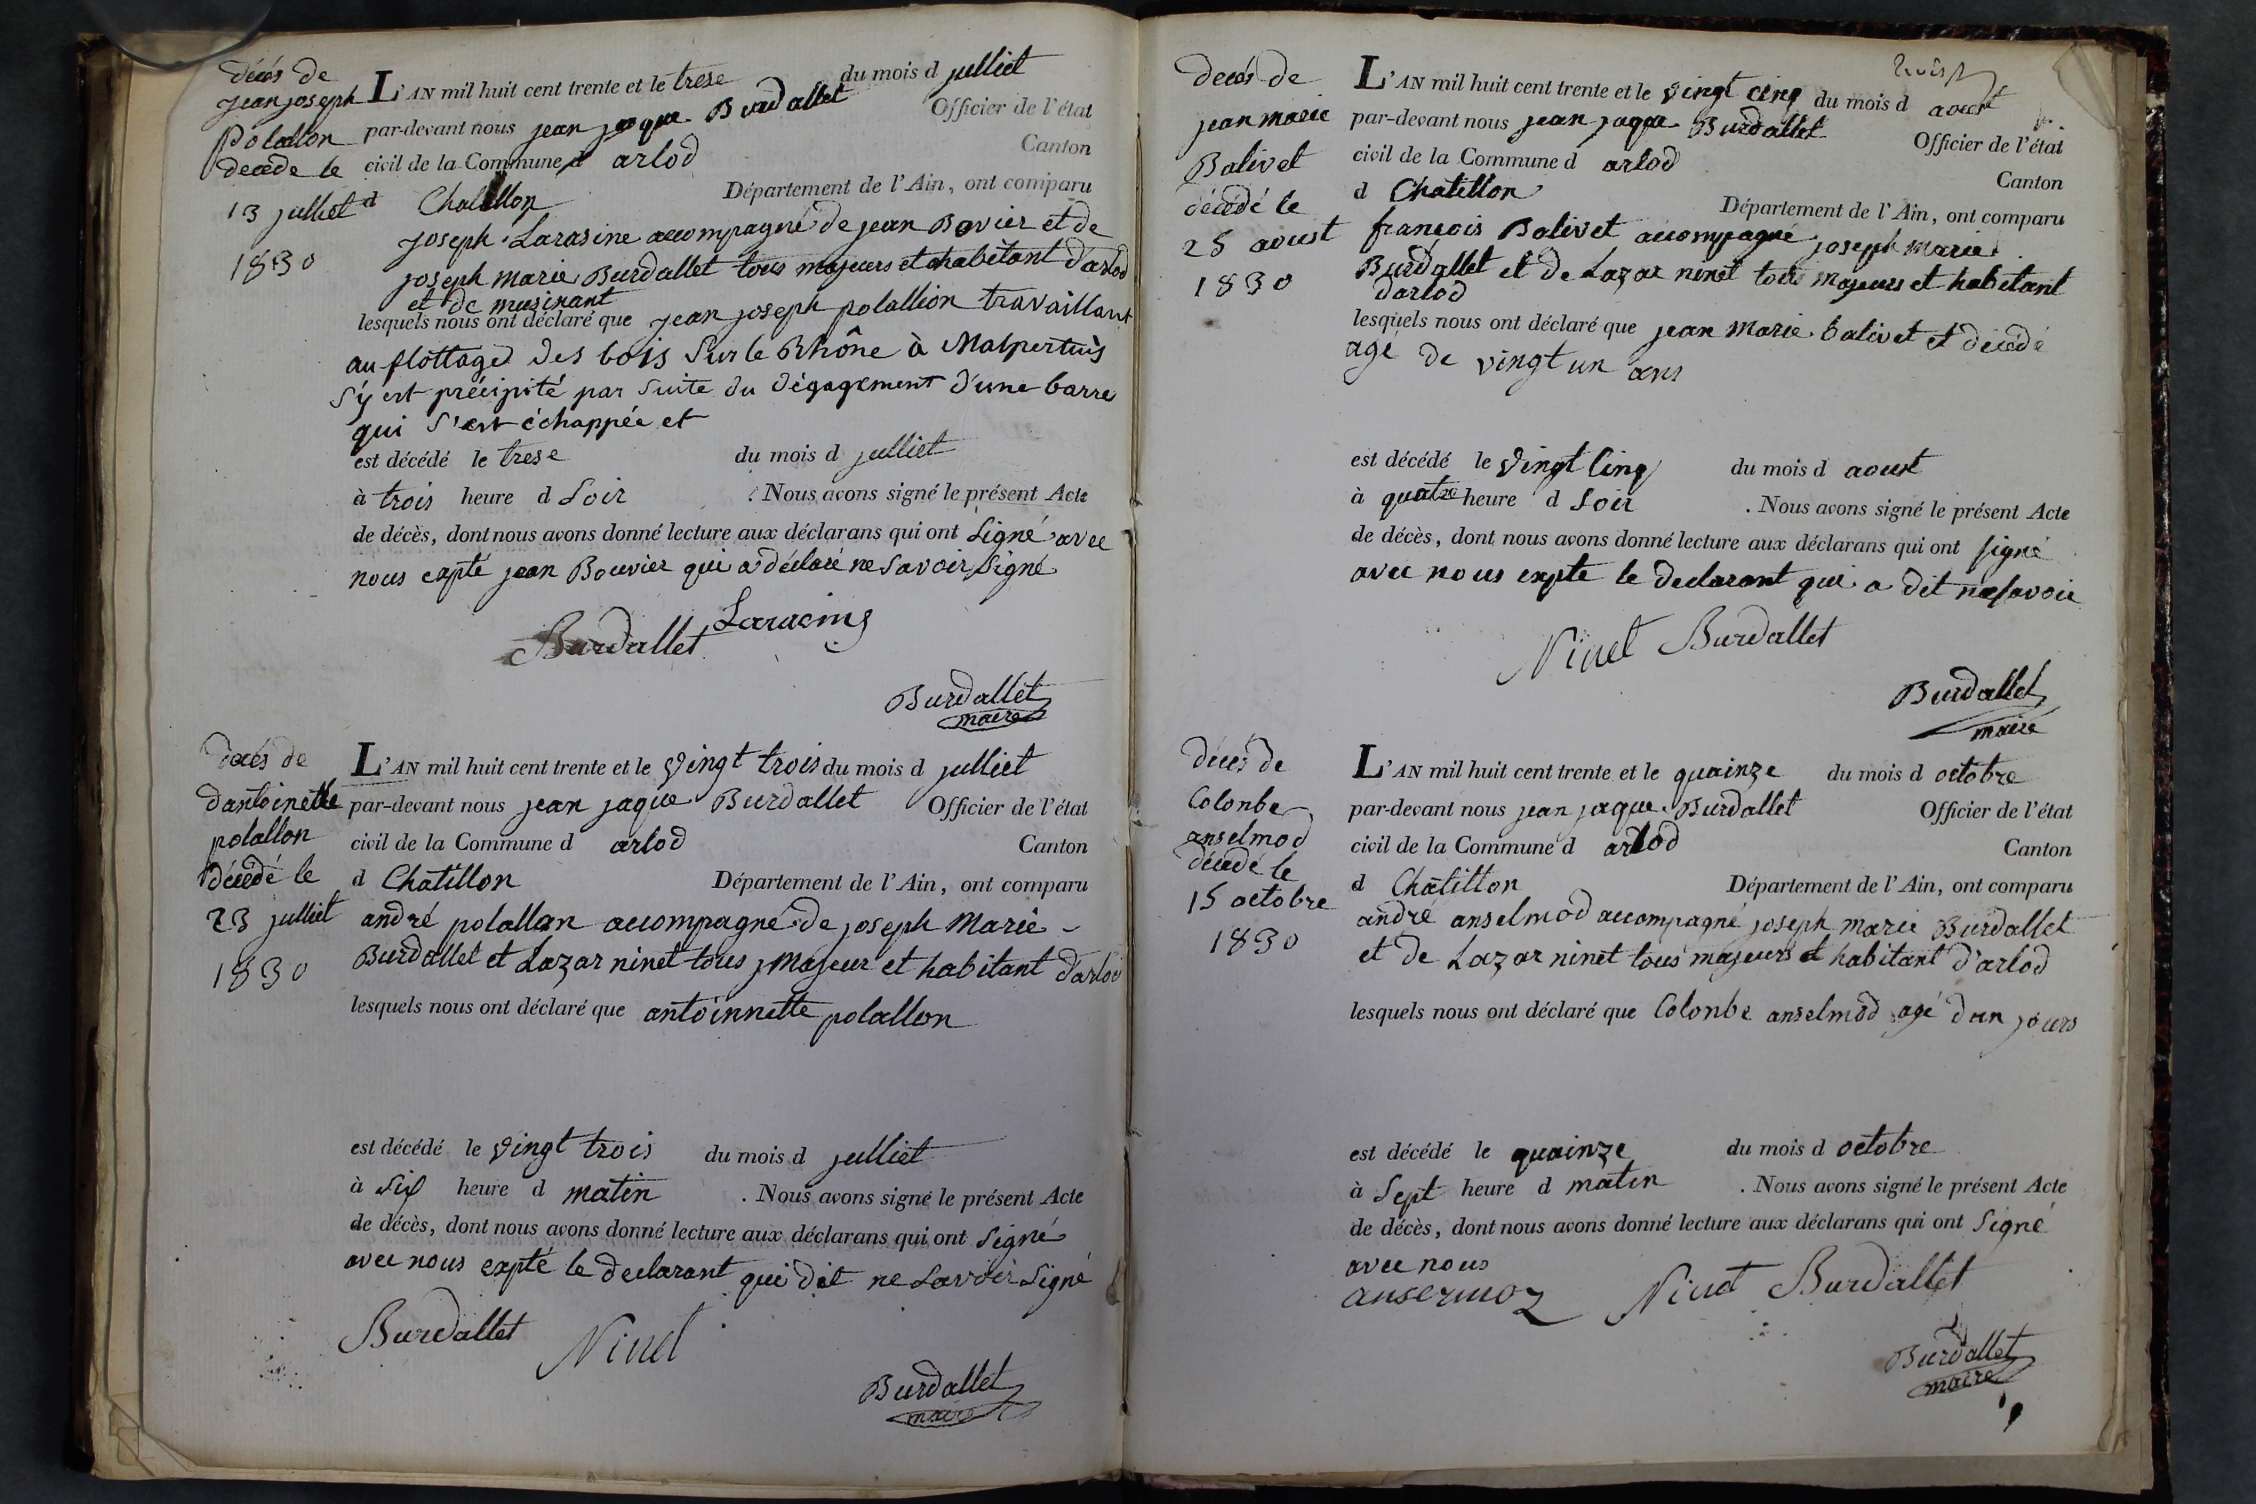 décés de
jean joseph
Polallon
decede le
13 julliet
1830
L'AN mil huit cent trente et le trese du mois d julliet
par-devant nous jean jaque Burdallet Officier de l'état
civil de la Commune d arlod Canton
d Chatillon Département de l'Ain, ont comparu
joseph Larasine accompagné de jean Bovier et de
joseph marie Burdallet tous majeurs et habitant d'arlod
et de musinant
lesquels nous ont déclaré que jean joseph polallion travaillant
au flottage des bois sur le Rhône à Malpertuis
s'y est précipité par suite du dégagement d'une barre
qui s'est échappée et
est décédé le trese du mois d julliet
à trois heure d soir . Nous avons signé le présent Acte
de décès, dont nous avons donné lecture aux déclarans qui ont signé avec
nous capté jean Bouvier qui a déclaré ne savoir signé
Burdallet Laracing
Burdallet
maire
decés de
d'antoinette
polallon
décédé le
23 julliet
1830
L'AN mil huit cent trente et le vingt trois du mois d julliet
par-devant nous jean jaque Burdallet Officier de l'état
civil de la Commune d arlod Canton
d Chatillon Département de l'Ain, ont comparu
andré polallon accompagné de joseph Marie
Burdallet et Lazar ninet tous majeur et habitant d'arlod
lesquels nous ont déclaré que antoinnette polallon
est décédé le vingt trois du mois d julliet
à six heure d matin . Nous avons signé le présent Acte
de décès, dont nous avons donné lecture aux déclarans qui ont signé
avec nous expté le declarant qui dit ne savoir signé
Burdallet Ninet
Burdallet
maire
trois
decés de
jean marie
Balivet
décédé le
25 aoust
1830
L'AN mil huit cent trente et le vingt cinq du mois d aoust
par-devant nous jean jaque Burdallet Officier de l'état
civil de la Commune d arlod Canton
d Chatillon Département de l'Ain, ont comparu
françois Balivet accompagné joseph marie
Burdallet et de Lazar ninet tous majeurs et habitant
d'arlod
lesquels nous ont déclaré que jean marie balivet et décédé
agé de vingt un ans
est décédé le vingt cinq du mois d aoust
à quatre heure d soir . Nous avons signé le présent Acte
de décès, dont nous avons donné lecture aux déclarans qui ont signé
avec nous expte le declarant qui a dit ne savoir
Ninet Burdallet
Burdallet
maire
décés de
Colonbe
anselmod
décédé le
15 octobre
1830
L'AN mil huit cent trente et le quainze du mois d octobre
par-devant nous jean jaque Burdallet Officier de l'état
civil de la Commune d arlod Canton
d Châtillon Département de l'Ain, ont comparu
andré anselmod accompagné joseph marie Burdallet
et de Lazar ninet tous majeurs et habitant d'arlod
lesquels nous ont déclaré que Colonbe anselmod agé d'un jours
est décédé le quainze du mois d octobre
à sept heure d matin . Nous avons signé le présent Acte
de décès, dont nous avons donné lecture aux déclarans qui ont signé
avec nous
ansermoz Ninet Burdallet
Burdallet
maire